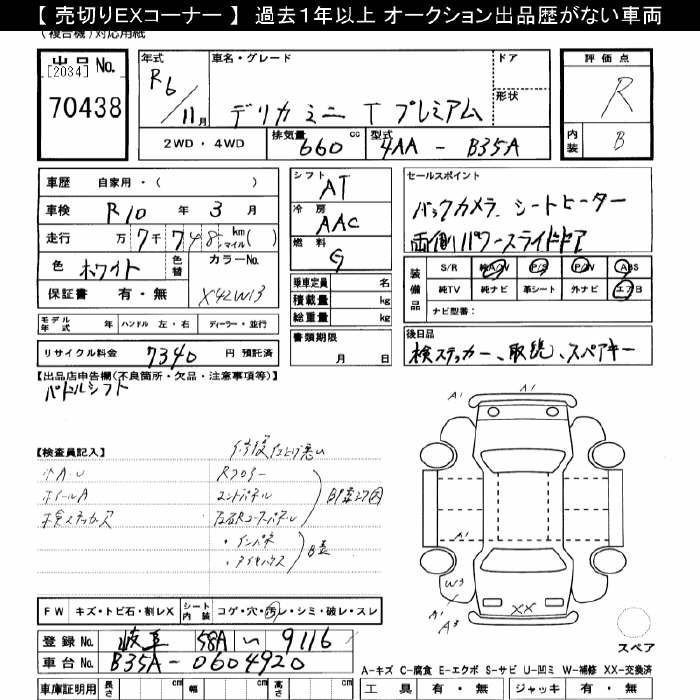 【 売切りEXコーナー 】 過去1年以上 オークション出品歴がない車両
(複合機)対応用紙
出品 No.
[2034]
70438
年式
R6/11月
車名・グレード
デリカミニ T プレミアム
ドア
形状
2WD ・ 4WD
排気量
660 cc
型式
4AA - B35A
評価点
R
内装
B
車歴 自家用・( )
車検 R10 年 3 月
走行 万 7千 748 km マイル ( )
色 ホワイト 色替 カラーNo.
X42W13
保証書 有・無
シフト
AT
冷房
AAC
燃料
G
乗車定員 名
積載量 kg
総重量 kg
書類期限
月 日
セールスポイント
バックカメラ、シートヒーター
両側パワースライドドア
装備品
S/R 純A/W P/S P/W ABS
純TV 純ナビ 革シート 外ナビ エアB
ナビ型番:
モデル年式 年 ハンドル 左・右 ディーラー・並行
リサイクル料金 7340 円 預託済
後日品
検ステッカー、取説、スペアキー
【出品店申告欄(不良箇所・欠品・注意事項等)】
パドルシフト
【検査員記入】
修復仕上げ悪い
小A・U
ホイールA
検ステッカー欠
Rフロアー
エンドパネル
左右Rコーナーパネル
・インパネ
・タイヤハウス
A1
A1
A1
A1
W3
A1
A3
XX
スペア
FW キズ・トビ石・割レX シート内装 コゲ・穴・汚レ・シミ・破レ・スレ
登録 No. 岐阜 58A い 9116
車台 No. B35A-0604920
A-キズ C-腐食 E-エクボ S-サビ U-凹ミ W-補修 XX-交換済
車庫証明用 長さ cm 幅 cm 高さ cm
工具 有・無 ジャッキ 有・無